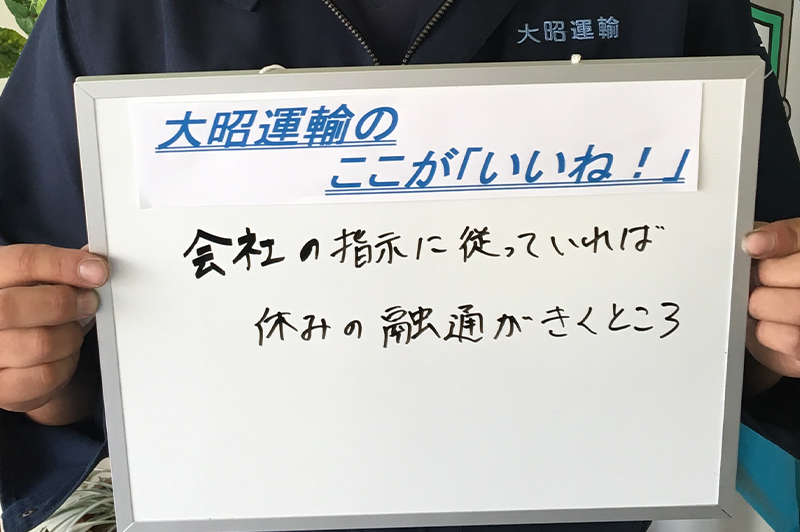 大昭運輸
大昭運輸の
ここが「いいね！」
会社の指示に従っていれば
休みの融通がきくところ